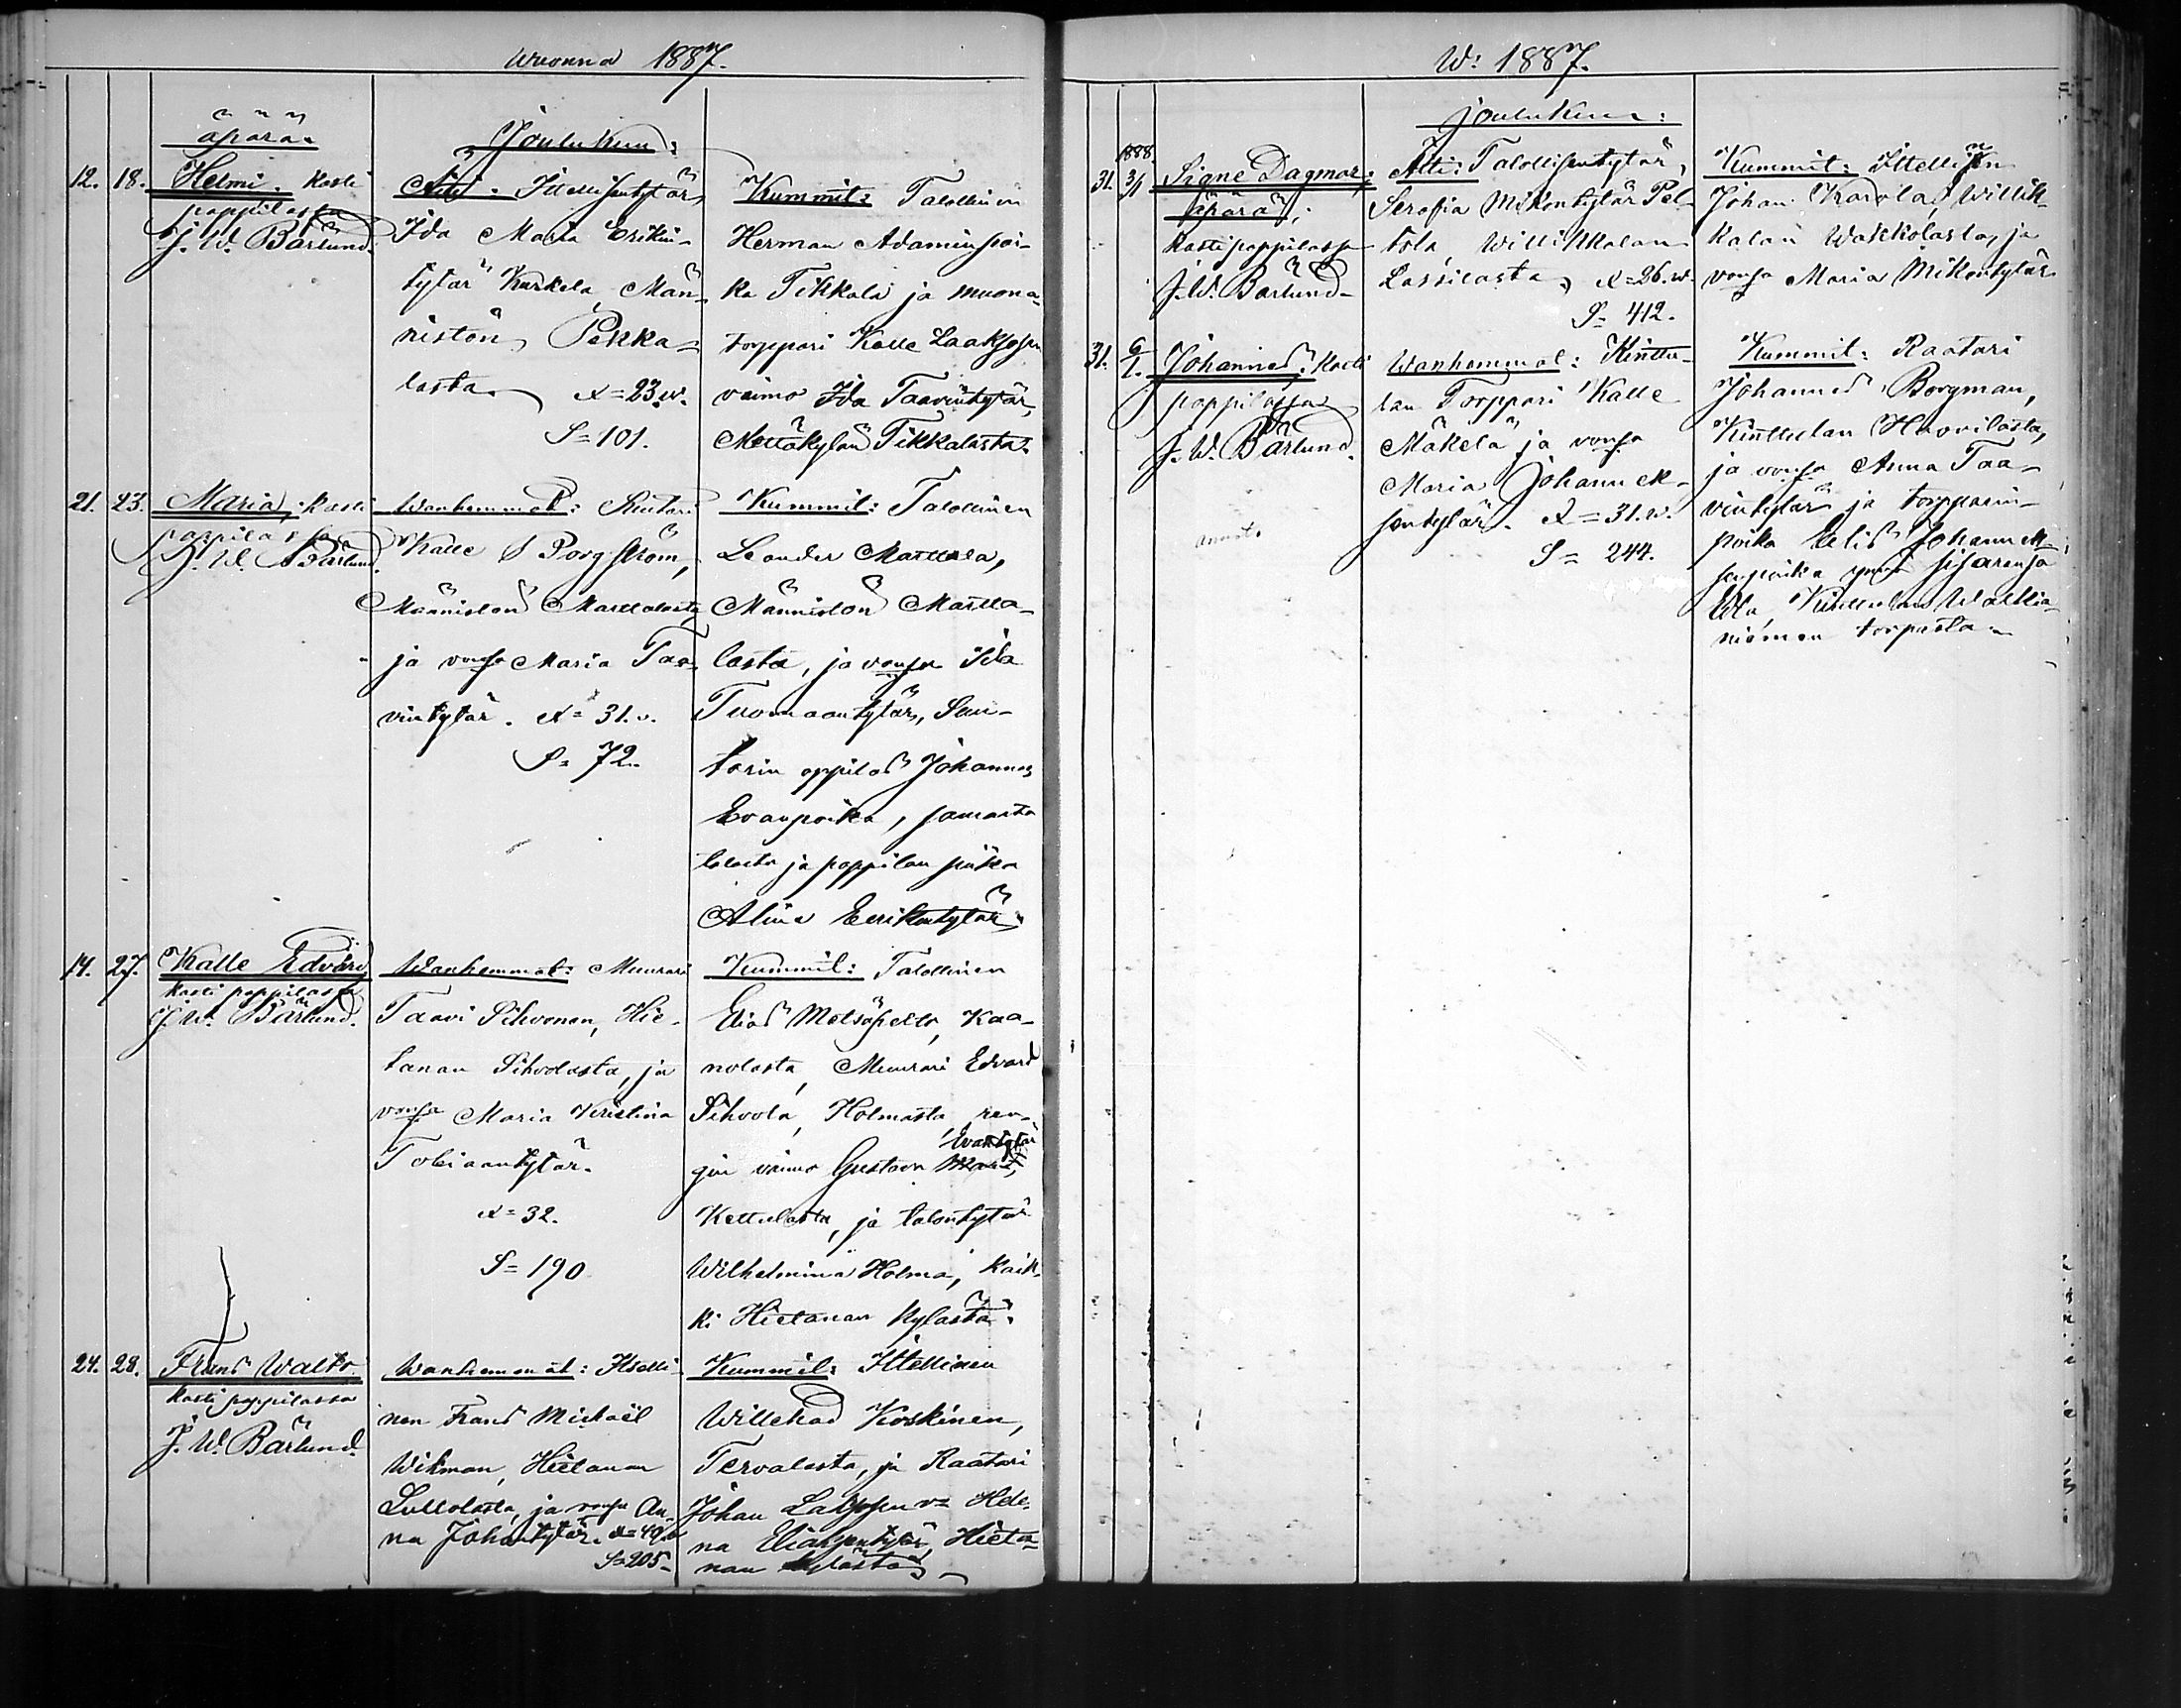 Wuonna 1887.
äpärä
Joulukuu:
12. 18. Helmi. Kasti
pappilassa
J. W. Bärlund.
Äiti. Itellisentytär
Ida Maria Erikin-
tytär Karkela, Män-
nistön, Pekka-
lasta. X=23.w.
S=101.
Kummit: Talollinen
Herman Adaminpoi-
ka Tikkala ja muona-
torppari Kalle Laaksosen
vaimo Ida Taavintytär,
Mettäkylän Tikkalasta.
21. 23. Maria, Kasti
pappilassa
J. W. Bärlund.
Wanhemmat: Suutari
Kalle S Borgström,
Männistön Marttalasta
ja vonsa Maria Taa-
vintytär. X=31.v.
S=72.
Kummit: Talollinen
Leander Marttala,
Männistön Martta-
lasta, ja vonsa Ida
Tuomaantytär, Suu-
tarin oppilas Johannes
Evanpoika, samasta
talosta ja pappilan piika
Alina Eerikintytär.
14. 27. Kalle Edvard
Kasti pappilassa
J. W. Bärlund.
Wanhemmat: Muurari
Taavi Sihvonen, Hie-
tanan Sihvolasta, ja
vonsa Maria Kristina
Tobiaantytär.
X=32.
S=190
Kummit: Talollinen
Elias Metsäpelto, Kaa-
nolasta, Muurari Edvard
Sihvola, Holmasta, ren-
Evantytär
gin vaimo Gustava
Kettulasta, ja talontytär
Wilhelmina Holma, Kaik-
ki Hietanan kylästä.
24. 28. Frans Walto.
Kasti pappilassa
J. W. Bärlund.
Wanhemmat: Itselli-
nen Frans Michaël
Wikman, Hietanan
Lullolasta, ja vonsa An-
na Johantytär. X=40.v
S=205-
Kummit: Ittellinen
Willehad Koskinen,
Tervalasta, ja Raatari
Johan Lappsen v= Hele-
na Eliaksentytär, Hieta-
nan kylästä
W: 1887.
Joulukuu:
1888.
31. 3/1 Signe Dagmar;
äpärä;
Kasti pappilassa
J. W. Bärlund-
Äiti: Talollisentytär,
Serafia Mikontytär Pel-
tola, Willikkalan
Lassilasta, X=26.w.
S= 412.
Kummit: Ittellisen
Johan Karola, Willik-
kalan Wakkolasta, ja
vonsa Maria Mikontytär
31. 6/1. Johannes, Kasti
pappilassa
J. W. Bärlund.
Wanhemmat: Kinttu-
lan Torppari Kalle
Mäkelä, ja vonsa
Maria Johannek-
sentytär. X=31.w.
S= 244.
Kummit: Raatari
Johannes Borgman,
Kinttulan Hoovilasta,
ja vonsa Anna Taa-
vintytär ja torpparin-
poika Elis Johannek-
senpoika ynnä sisarensa
Ida, Kinttulan Walkia-
niemen torpasta.